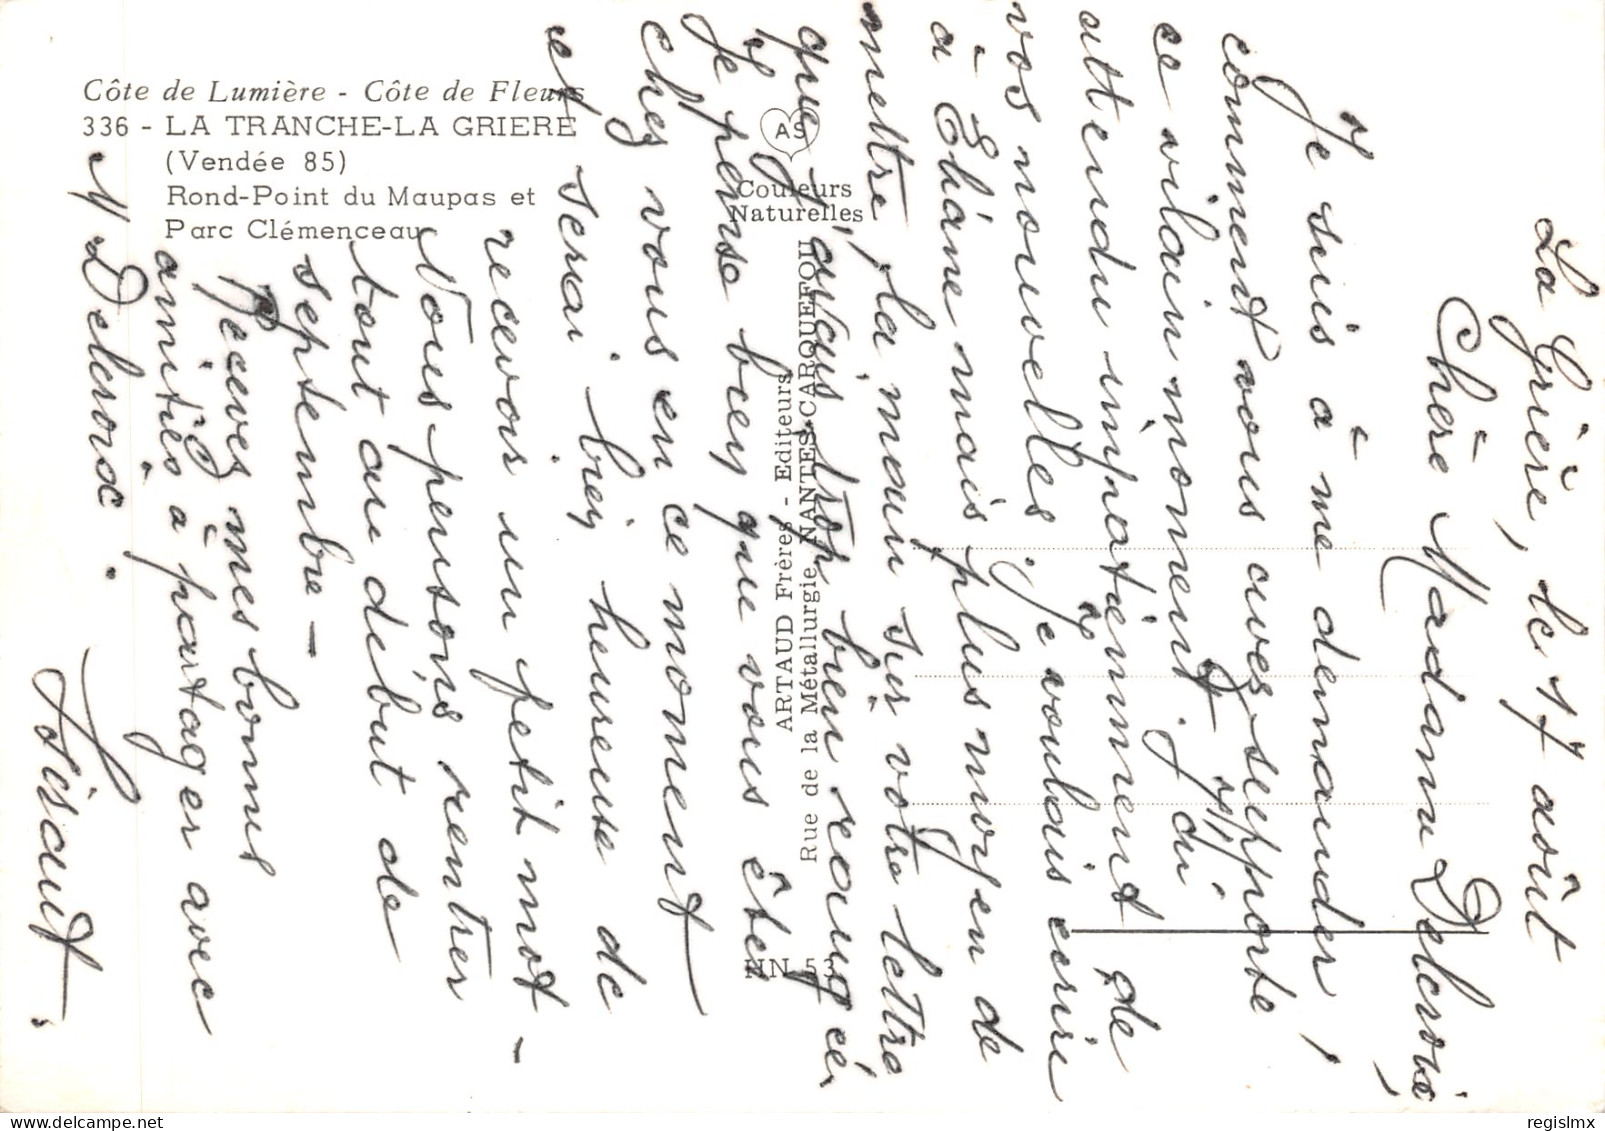 Côte de Lumière - Côte de Fleurs
336 - LA TRANCHE-LA GRIERE
(Vendée 85)
Rond-Point du Maupas et
Parc Clémenceau
AS
Couleurs
Naturelles
ARTAUD Frères - Editeurs
Rue de la Métallurgie NANTES-CARQUEFOU
HN 53
La Grière, le 17 août
Chère Madame Delcroix,
Je suis à me demander,
comment vous avez supporté
ce vilain moment. J'ai
attendu impatiemment de
vos nouvelles. Je voulais écrire
à Eliane mais plus moyen de
mettre la main sur votre lettre
que j'avais trop bien rangée,
Je pense bien que vous êtes
chez vous en ce moment
et serai bien heureuse de
recevoir un petit mot -
Nous pensons rentrer
tout au début de
septembre -
Recevez mes bonnes
amitiés à partager avec
M Delcroix.
regislmx